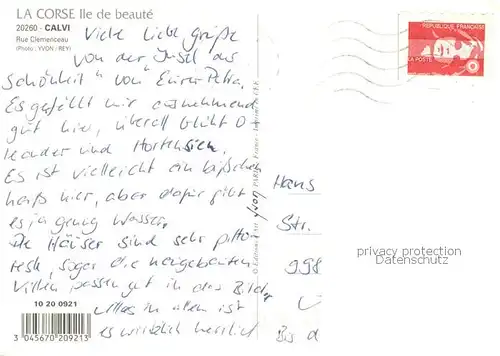 LA CORSE Ile de beauté
20260 - CALVI
Rue Clemenceau
(Photo : YVON / REY)
REPUBLIQUE FRANÇAISE
LA POSTE
Viele liebe Grüße
von der "Insel der
Schönheit" von Eurer Petra.
Es gefällt mir ausnehmend
gut hier, überall blüht O-
leander und Hortensien.
Es ist vielleicht ein bißchen
heiß hier, aber dafür gibt
es ja genug Wasser.
Die Häuser sind sehr pitto-
resk, sogar die neugebauten
Villen passen gut in das Bild.
Alles in allem ist
es wirklich herrlich
Hans
Str.
998
privacy protection
Datenschutz
10 20 0921
3 045670 209213